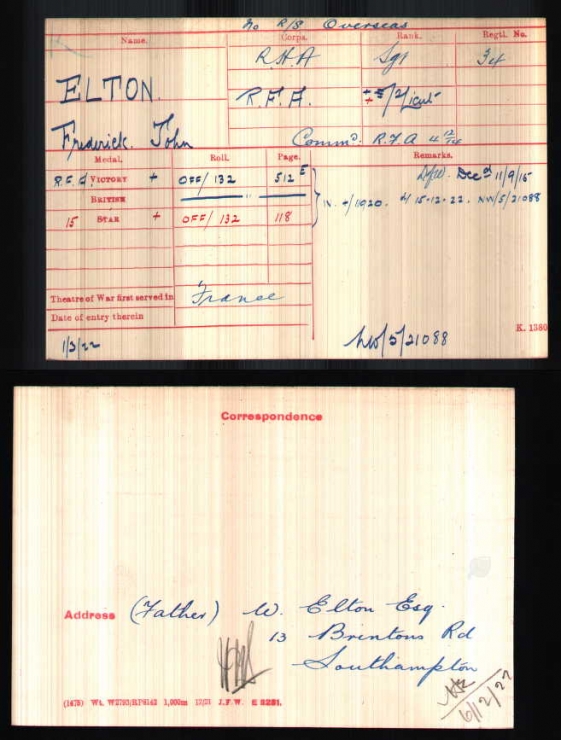 No R/S Overseas
Name. Corps. Rank. Regtl. No.
ELTON. R.H.A Sgt 34
R.F.A. 2/Lieut
Frederick John Commd. R.F.A 4 12/14
Medal. Roll. Page. Remarks.
R.F.A VICTORY + OFF/132 512E Decd 11/9/15
BRITISH " " IV. 1920. 15-12-22. NW/5/21088
15 STAR + OFF/132 118
Theatre of War first served in France
Date of entry therein
K. 1380
1/3/22 NW/5/21088
Correspondence
Address (Father) W. Elton Esq.
13 Brintons Rd
Southampton
6/12/22
(1478) Wt. 1,000m 12/21 J.F.W. E 9281.